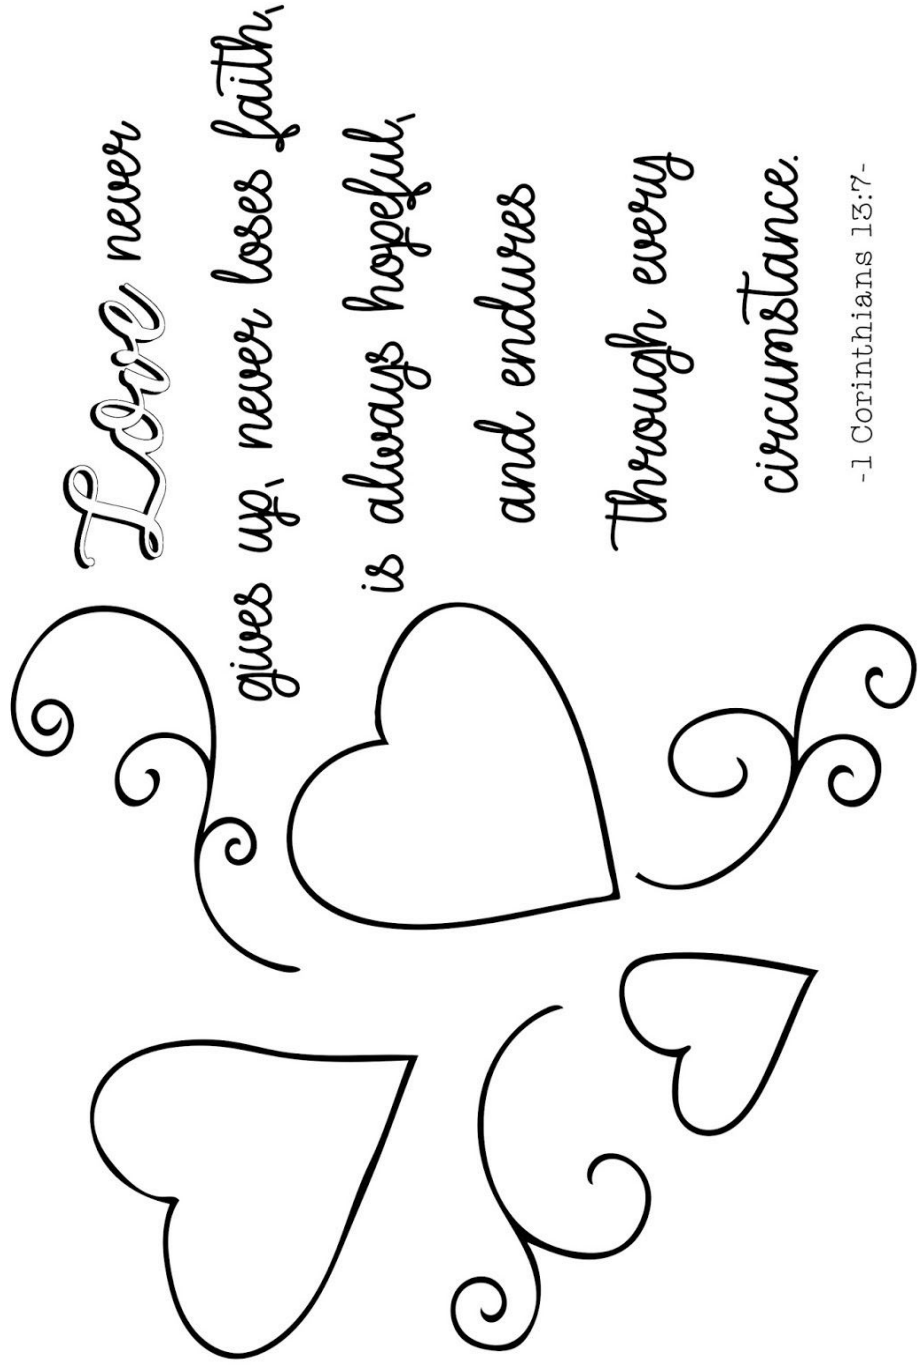 Love never
gives up, never loses faith,
is always hopeful,
and endures
through every
circumstance.
-1 Corinthians 13:7-